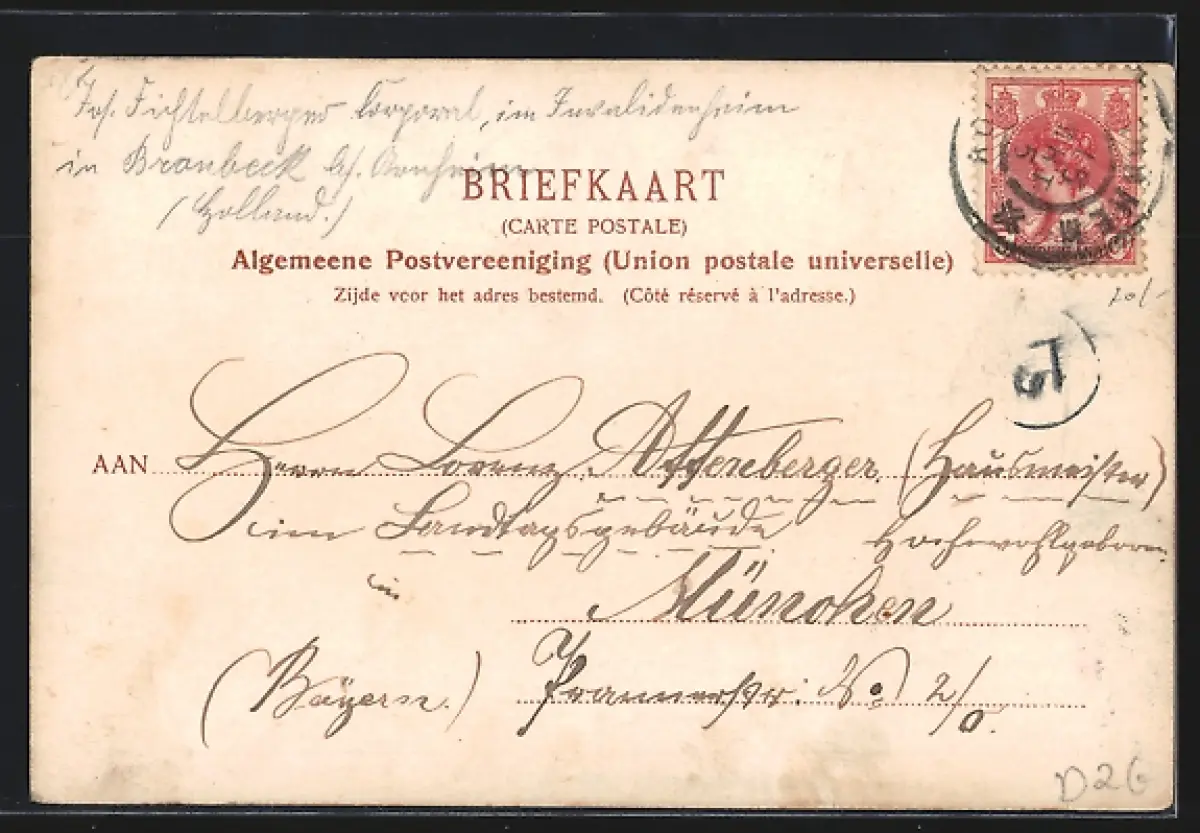 Jos. Fichtelberger Corporal, im Invalidenheim
in Bronbeek b/. Arnheim
(Holland.)
BRIEFKAART
(CARTE POSTALE)
Algemeene Postvereeniging (Union postale universelle)
Zijde voor het adres bestemd. (Côté réservé à l'adresse.)
20/-
AAN Herrn Lorenz Attenberger, (Hausmeister)
im Landtagsgebäude Hochwohlgeboren
in
München
(Bayern.) Prannerstr: No 2/0.
D26